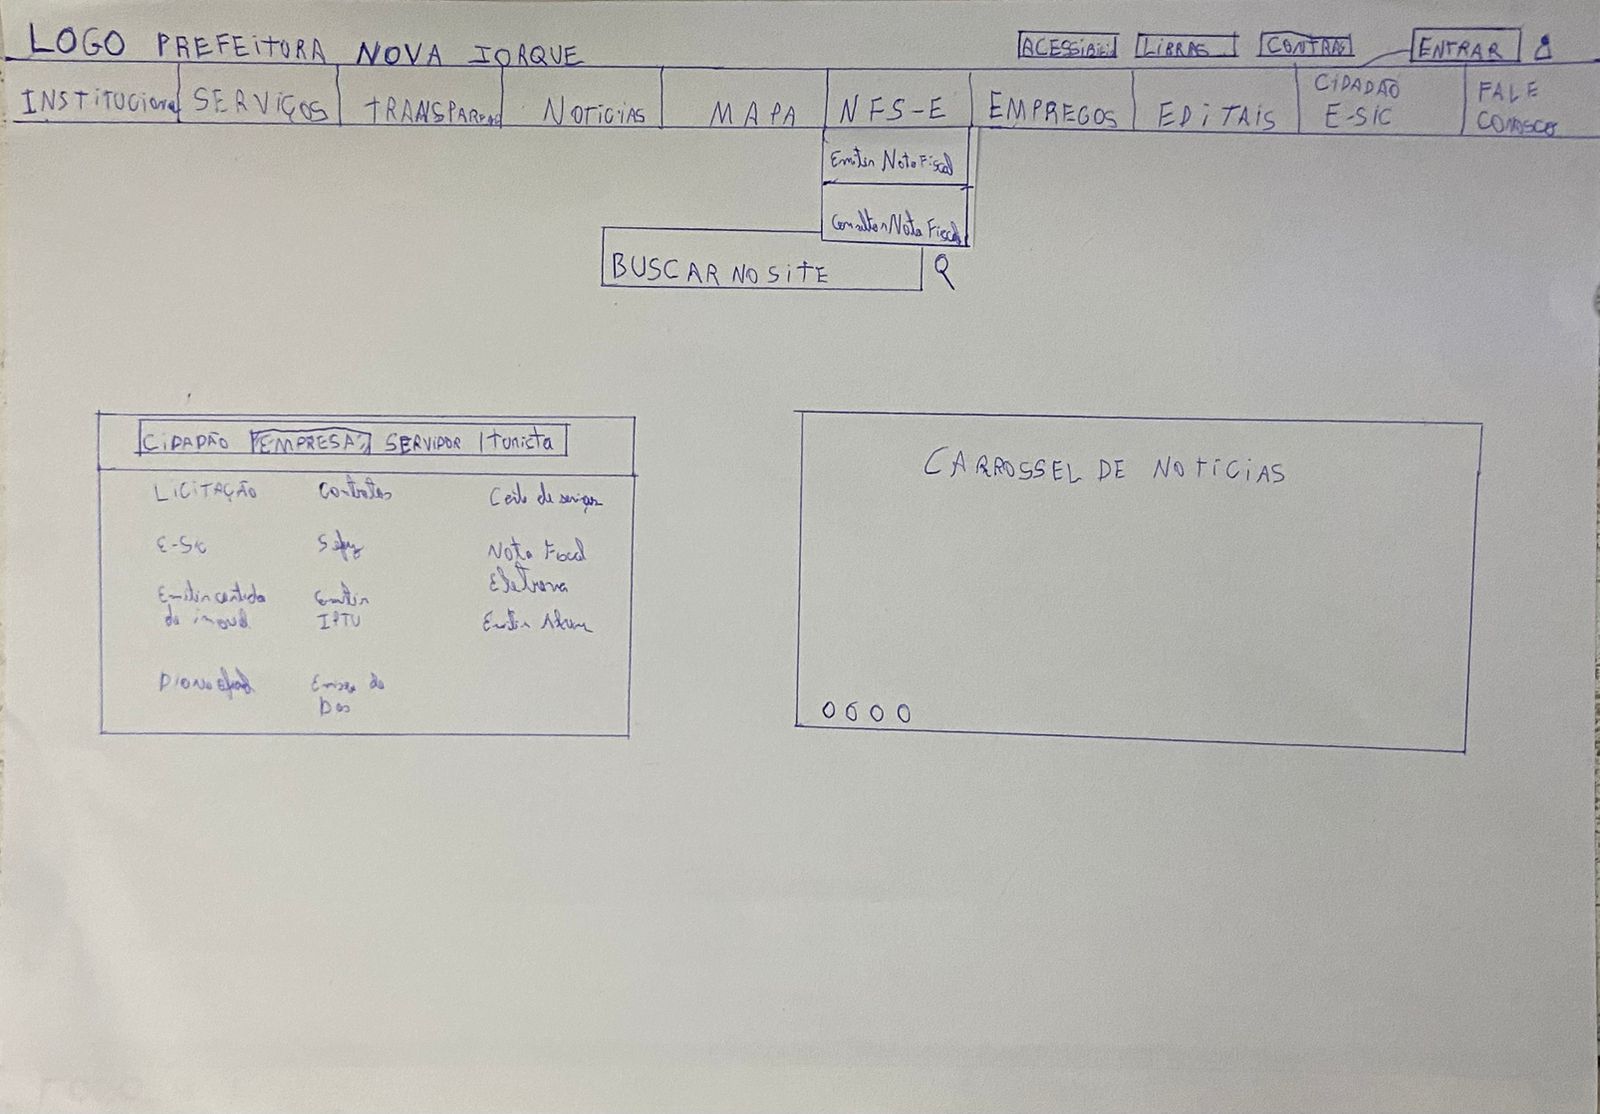 LOGO PREFEITURA NOVA IORQUE
ACESSIBILI LIBRAS CONTRAS ENTRAR
INSTITUCIONAL SERVIÇOS TRANSPARENC NOTICIAS MAPA NFS-E EMPREGOS EDITAIS CIDADÃO E-SIC FALE CONOSCO
Emitir Nota Fiscal
Consultar Nota Fiscal
BUSCAR NO SITE
CIDADÃO EMPRESA SERVIDOR turista
LICITAÇÃO Contratos
E-Sic Sefaz Nota Fiscal
Emitir
de imovel IPTU Emitir
Diario oficial
CARROSSEL DE NOTICIAS